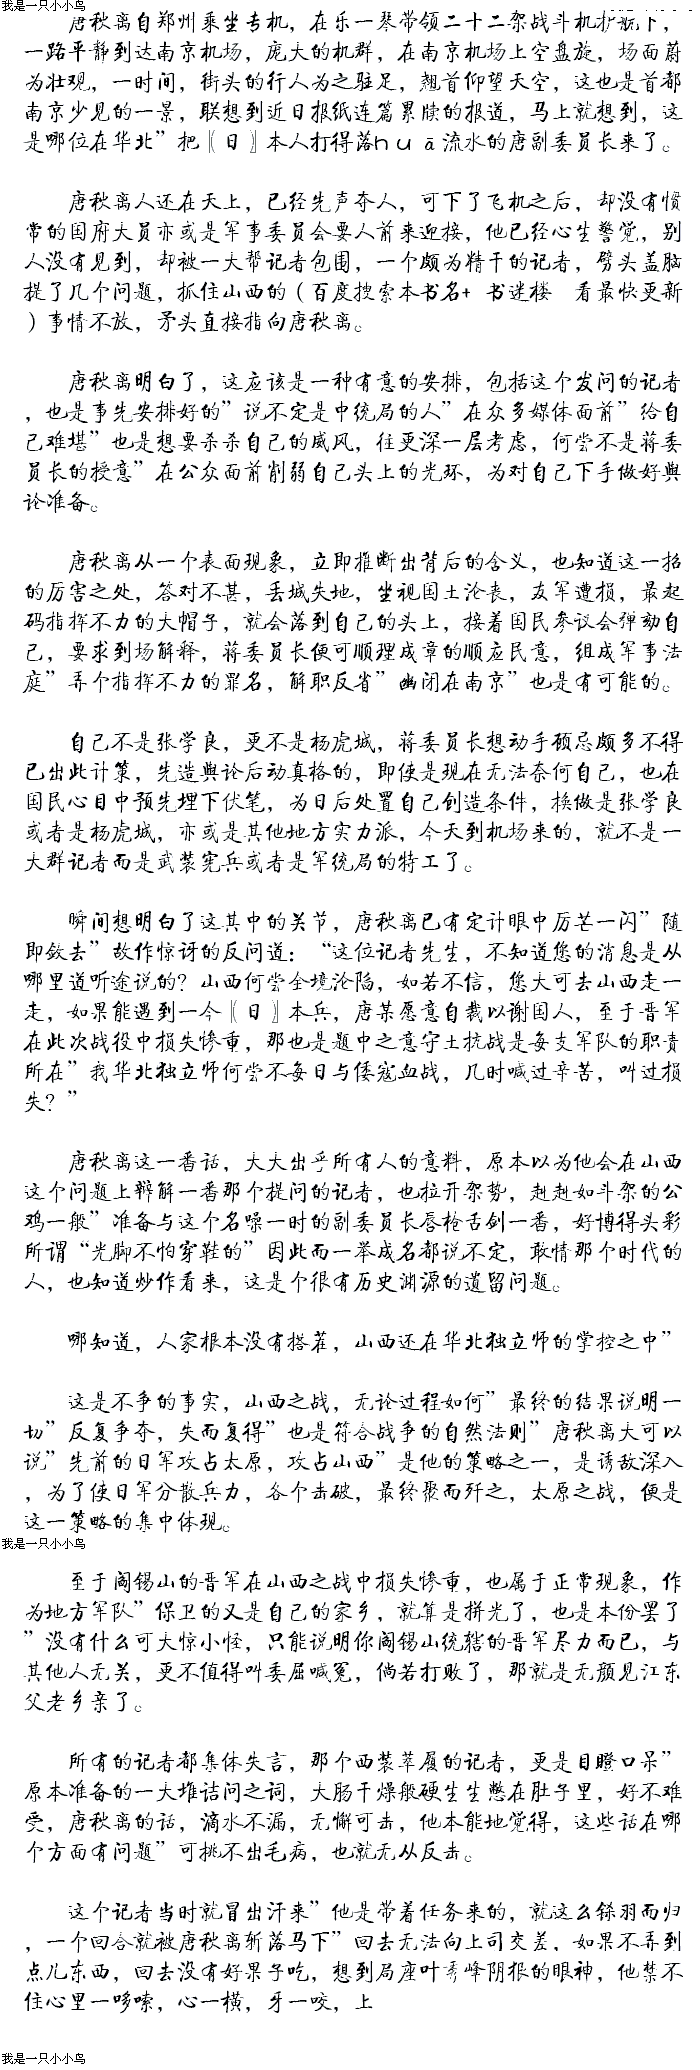 我是一只小小鸟
唐秋离自郑州乘坐专机，在乐一琴带领二十二架战斗机护航下，
一路平静到达南京机场，庞大的机群，在南京机场上空盘旋，场面蔚
为壮观，一时间，街头的行人为之驻足，翘首仰望天空，这也是首都
南京少见的一景，联想到近日报纸连篇累牍的报道，马上就想到，这
是哪位在华北”把〖日〗本人打得落huā流水的唐副委员长来了。
唐秋离人还在天上，已经先声夺人，可下了飞机之后，却没有惯
常的国府大员亦或是军事委员会要人前来迎接，他已经心生警觉，别
人没有见到，却被一大帮记者包围，一个颇为精干的记者，劈头盖脑
提了几个问题，抓住山西的（百度搜索本书名+ 书迷楼 看最快更新
）事情不放，矛头直接指向唐秋离。
唐秋离明白了，这应该是一种有意的安排，包括这个发问的记者
，也是事先安排好的”说不定是中统局的人”在众多媒体面前”给自
己难堪”也是想要杀杀自己的威风，往更深一层考虑，何尝不是蒋委
员长的授意”在公众面前削弱自己头上的光环，为对自己下手做好舆
论准备。
唐秋离从一个表面现象，立即推断出背后的含义，也知道这一招
的厉害之处，答对不甚，丢城失地，坐视国土沦丧，友军遭损，最起
码指挥不力的大帽子，就会落到自己的头上，接着国民参议会弹劾自
己，要求到场解释，蒋委员长便可顺理成章的顺应民意，组成军事法
庭”弄个指挥不力的罪名，解职反省”幽闭在南京”也是有可能的。
自己不是张学良，更不是杨虎城，蒋委员长想动手顾忌颇多不得
已出此计策，先造舆论后动真格的，即使是现在无法奈何自己，也在
国民心目中预先埋下伏笔，为日后处置自己创造条件，换做是张学良
或者是杨虎城，亦或是其他地方实力派，今天到机场来的，就不是一
大群记者而是武装宪兵或者是军统局的特工了。
瞬间想明白了这其中的关节，唐秋离已有定计眼中厉芒一闪”随
即敛去”故作惊讶的反问道：“这位记者先生，不知道您的消息是从
哪里道听途说的？山西何尝全境沦陷，如若不信，您大可去山西走一
走，如果能遇到一今〖日〗本兵，唐某愿意自裁以谢国人，至于晋军
在此次战役中损失惨重，那也是题中之意守土抗战是每支军队的职责
所在”我华北独立师何尝不每日与倭寇血战，几时喊过辛苦，叫过损
失？”
唐秋离这一番话，大大出乎所有人的意料，原本以为他会在山西
这个问题上辩解一番那个提问的记者，也拉开架势，赳赳如斗架的公
鸡一般”准备与这个名噪一时的副委员长唇枪舌剑一番，好博得头彩
所谓“光脚不怕穿鞋的”因此而一举成名都说不定，敢情那个时代的
人，也知道炒作看来，这是个很有历史渊源的遗留问题。
哪知道，人家根本没有搭茬，山西还在华北独立师的掌控之中”
这是不争的事实，山西之战，无论过程如何”最终的结果说明一
切”反复争夺，失而复得”也是符合战争的自然法则”唐秋离大可以
说”先前的日军攻占太原，攻占山西”是他的策略之一，是诱敌深入
，为了使日军分散兵力，各个击破，最终聚而歼之，太原之战，便是
这一策略的集中体现。
我是一只小小鸟
至于阎锡山的晋军在山西之战中损失惨重，也属于正常现象，作
为地方军队”保卫的又是自己的家乡，就算是拼光了，也是本份罢了
”没有什么可大惊小怪，只能说明你阎锡山统辖的晋军尽力而已，与
其他人无关，更不值得叫委屈喊冤，倘若打败了，那就是无颜见江东
父老乡亲了。
所有的记者都集体失言，那个西装革履的记者，更是目瞪口呆”
原本准备的一大堆诘问之词，大肠干燥般硬生生憋在肚子里，好不难
受，唐秋离的话，滴水不漏，无懈可击，他本能地觉得，这些话在哪
个方面有问题”可挑不出毛病，也就无从反击。
这个记者当时就冒出汗来”他是带着任务来的，就这么铩羽而归
，一个回合就被唐秋离斩落马下”回去无法向上司交差，如果不弄到
点儿东西，回去没有好果子吃，想到局座叶秀峰阴狠的眼神，他禁不
住心里一哆嗦，心一横，牙一咬，上
我是一只小小鸟